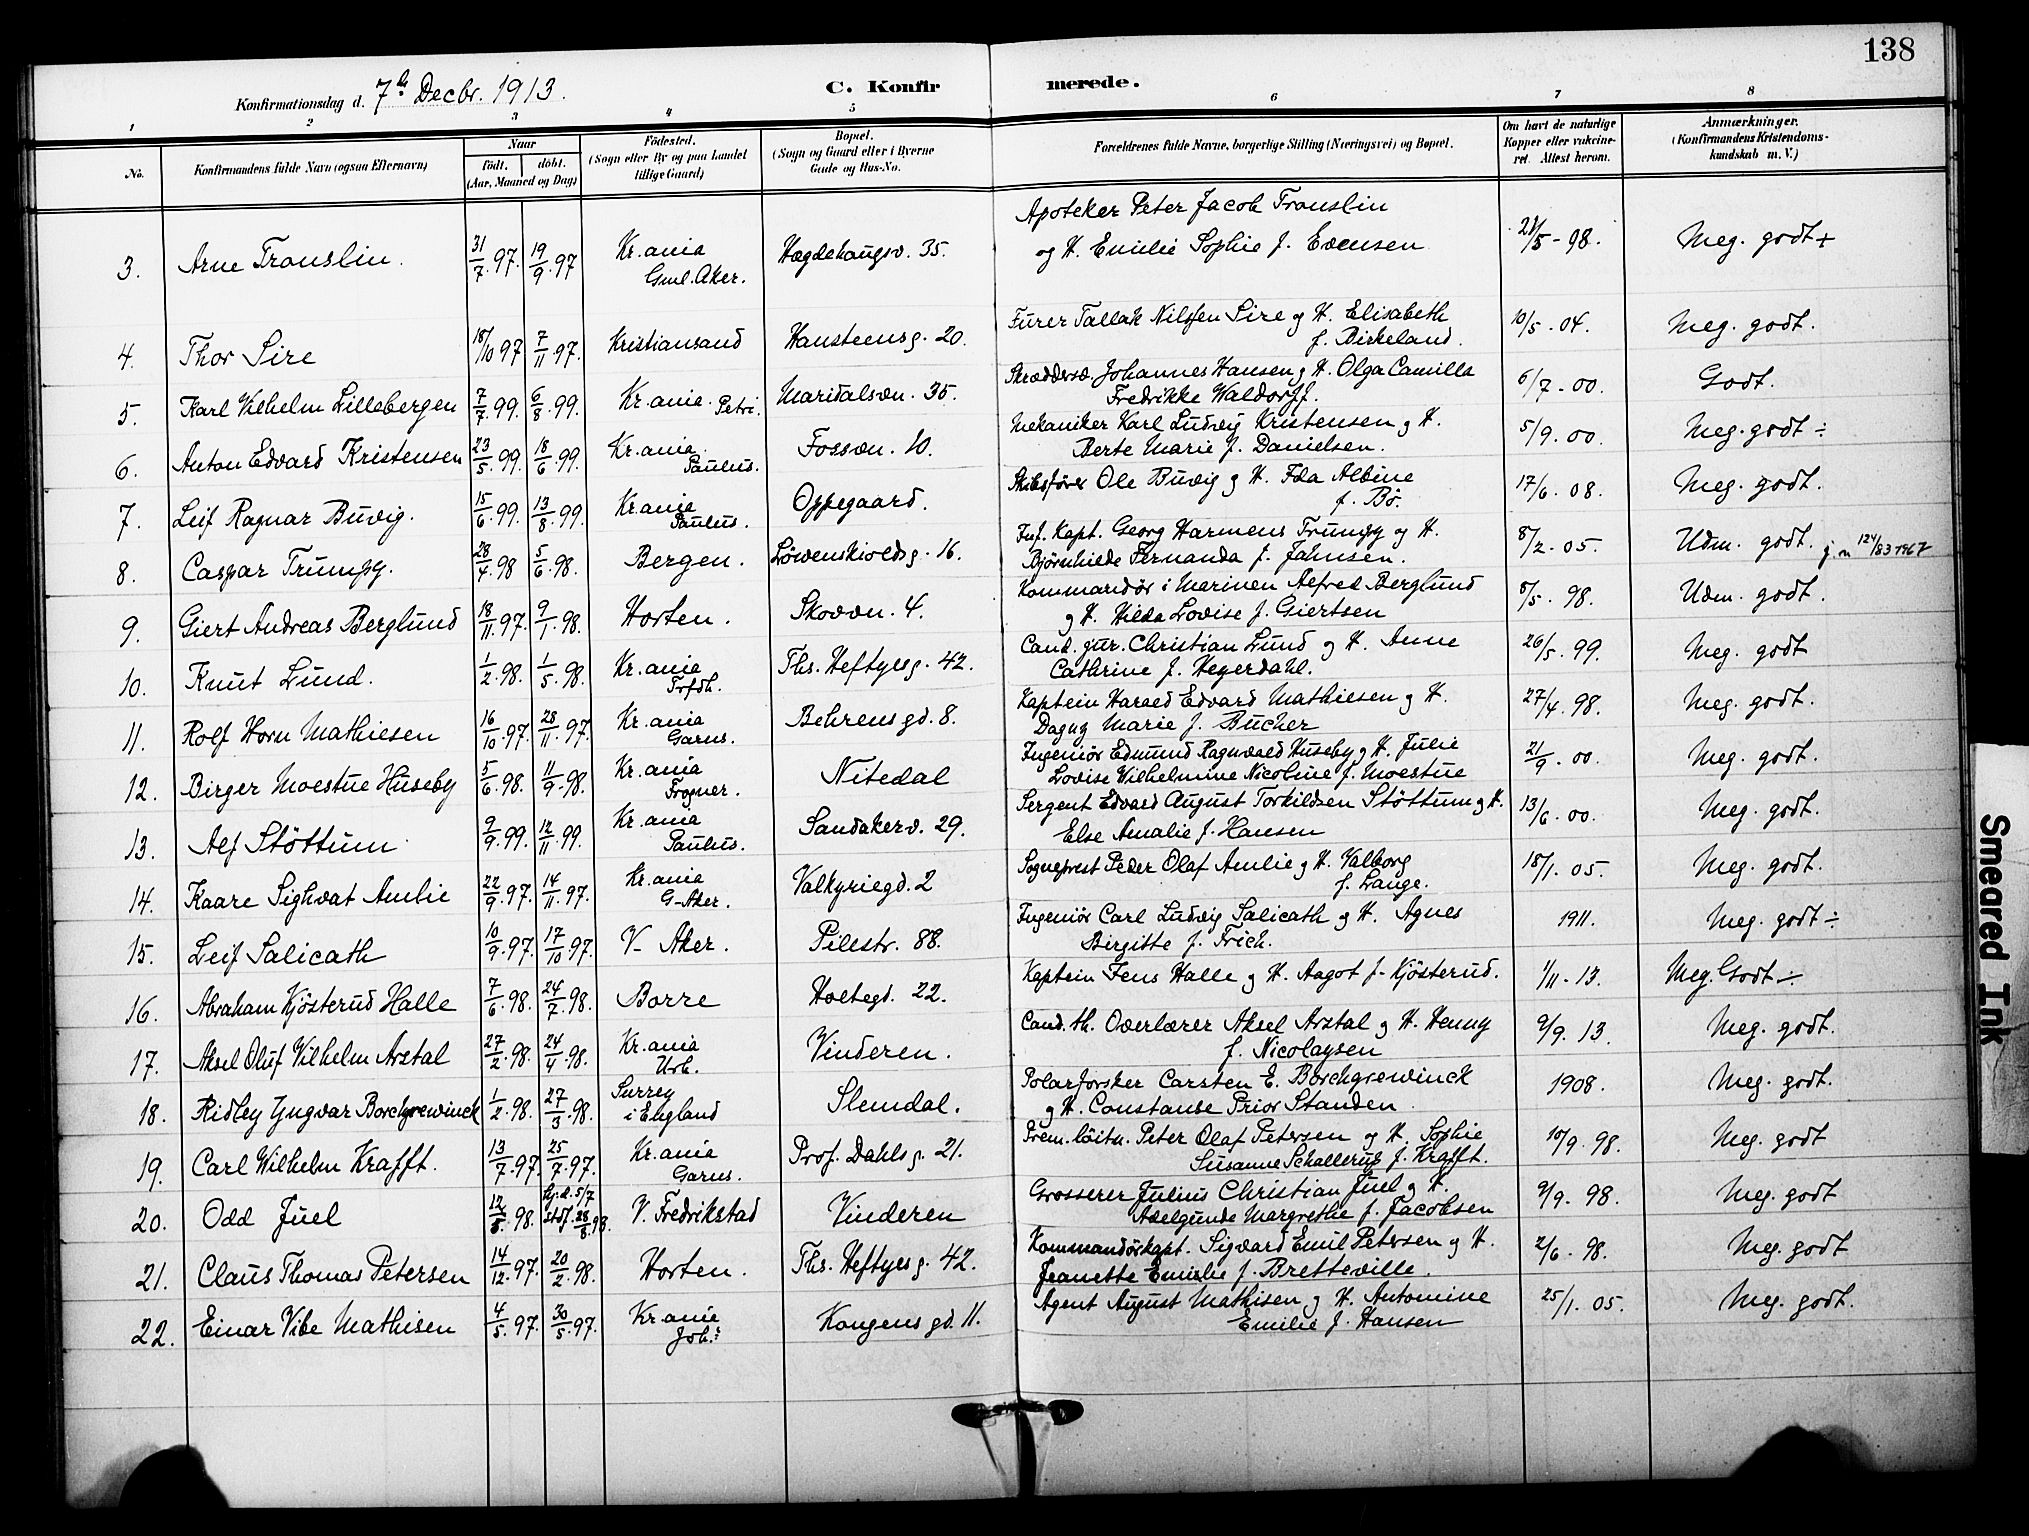 138
Konfirmationsdag d. 7de Decbr. 1913.
C. Konfirmerede.
1 2 3 4 5 6 7 8
No.
Konfirmandens fulde Navn (ogsaa Efternavn)
Naar
født. døbt.
(Aar, Maaned og Dag)
Fødested.
(Sogn eller By og paa Landet
tillige Gaard)
Bopæl.
(Sogn og Gaard eller i Byerne
Gade og Hus-No.
Forældrenes fulde Navne, borgerlige Stilling (Næringsvei) og Bopæl.
Om havt de naturlige
Kopper eller vakcine-
ret. Attest herom.
Anmærkninger.
(Konfirmandens Kristendoms-
kundskab m. V.)
Apoteker Peter Jacob Translin
3. Arne Translin. 31/7.97. 19/9.97 Kr.ania Hægdehaugsv. 35. og H. Emilie Sophie f. Evensen 21/5-98. Meg. godt+
Gml. Aker.
Furer Tallak Nilsen Sire og H. Elisabeth
4. Thor Sire 18/10 97 7/11.97. Kristiansand Hansteensg. 20. f. Birkeland. 10/5.04. Meg. godt.
Skræddersv. Johannes Hansen og H. Olga Camilla
5. Karl Vilhelm Lillebergen 7/7.99. 6/8.99. Kr.ania. Petri. Maridalsvn. 35. Fredrikke Waldorff. 6/7-00. Godt.
Mekaniker Karl Ludvig Kristensen og H.
6. Anton Edvard Kristensen 23/5.99. 18/6.99. Kr.ania Paulus. Fossvn. 10. Berte Marie f. Danielsen. 5/9.00. Meg. godt ÷
Skibsfører Ole Buvig og H. Ida Albine
7. Leif Ragnar Buvig. 15/6.99. 13/8.99. Kr.ania Paulus. Oppegaard. f. Bø. 17/6.08. Meg. godt.
Inf. Kapt. Georg Harmens Trumpy og H.
8. Caspar Trumpy. 28/4.98 5/6.98. Bergen. Løwenskioldsg. 16. Bjørnhilde Fernanda f. Jahnsen. 8/2.05. Udm. godt. j. n 124/83 1967
Kommandør i Marinen Alfred Berglund
9. Giert Andreas Berglund 18/11.97. 9/1.98. Horten. Skovvn. 4. og H. Hilda Lovise f. Giertsen 8/5.98. Udm. godt.
Cand. jur. Christian Lund og H. Anne
10. Knut Lund. 1/2.98. 1/5.98. Kr.ania Trfdh. Ths. Heftyesg. 42. Cathrine f. Hegerdahl. 26/5.99. Meg. godt
Kaptein Harald Edvard Mathiesen og H.
11. Rolf Horn Mathiesen 16/10.97. 28/11.97. Kr.ania Garns. Behrensgd. 8. Dagny Marie f. Bucher 27/4.98. Meg. godt.
Ingeniør Edmund Ragnvald Huseby og H. Julie
12. Birger Moestue Huseby 5/6.98. 11/9.98. Kr.ania Frogner. Nitedal Lovise Wilhelmine Nicoline f. Moestue 21/9.00. Meg. godt.
Sergent Edvard August Torkildsen Støttum og H.
13. Alf Støttum 9/9.99. 12/11.99. Kr.ania Paulus. Sandakerv. 29. Else Amalie f. Hansen 13/6.00. Meg. godt.
Sogneprest Peder Olaf Amlie og H. Valborg
14. Kaare Sighvat Amlie 22/9.97. 14/11.97. Kr.ania G-Aker. Valkyriegd. 2 f. Lange. 18/1.05. Meg. godt.
Ingeniør Carl Ludvig Salicath og H. Agnes
15. Leif Salicath 10/9.97. 17/10.97. V-Aker. Pilestr. 88. Birgitte f. Frich. 1911. Meg. godt ÷
16. Abraham Kjøsterud Halle 7/6.98. 24/7.98. Borre Holtegd. 22. Kaptein Jens Halle og H. Aagot f. Kjøsterud. 1/11-13. Meg. Godt ÷
Cand. th. Overlærer Aksel Arstal og H. Henny
17. Aksel Oluf Vilhelm Arstal 27/2.98. 24/4.98. Kr.ania Urb. Vinderen. f. Nicolaysen 9/9.13. Meg. godt.
Polarforsker Carsten E. Borchgrewinck
18. Ridley Yngvar Borchgrewinck 1/2.98. 27/3.98. Surrey i England Slemdal. og H. Constanse Prior Standen 1908. Meg. godt.
Prem. løitn. Peter Olaf Petersen og H. Sophie
19. Carl Wilhelm Krafft. 13/7.97. 25/7.97. Kr.ania Garns. Prof. Dahlsg. 21. Susanne Schallerup f. Krafft. 10/9.98. Meg. godt
Hj.d. 5/7 Grosserer Julius Christian Juel og H.
20. Odd Juel 12/5.98. stdf. 28/8.98. V. Fredrikstad Vinderen Adelgunde Margrethe f. Jacobsen 9/9.98. Meg. godt
Kommandørkapt. Sigvard Emil Petersen og H.
21. Claus Thomas Petersen 14/12.97. 20/2.98. Horten. Ths. Heftyesg. 42. Jeanette Emilie f. Bretteville. 2/6.98. Meg. godt
Agent August Mathisen og H. Antonine
22. Einar Vibe Mathisen 4/5.97. 30/5.97. Kr.ania Joh.s Kongensgd. 11. Emilie f. Hansen 25/1.05. Meg. godt.
Smeared Ink